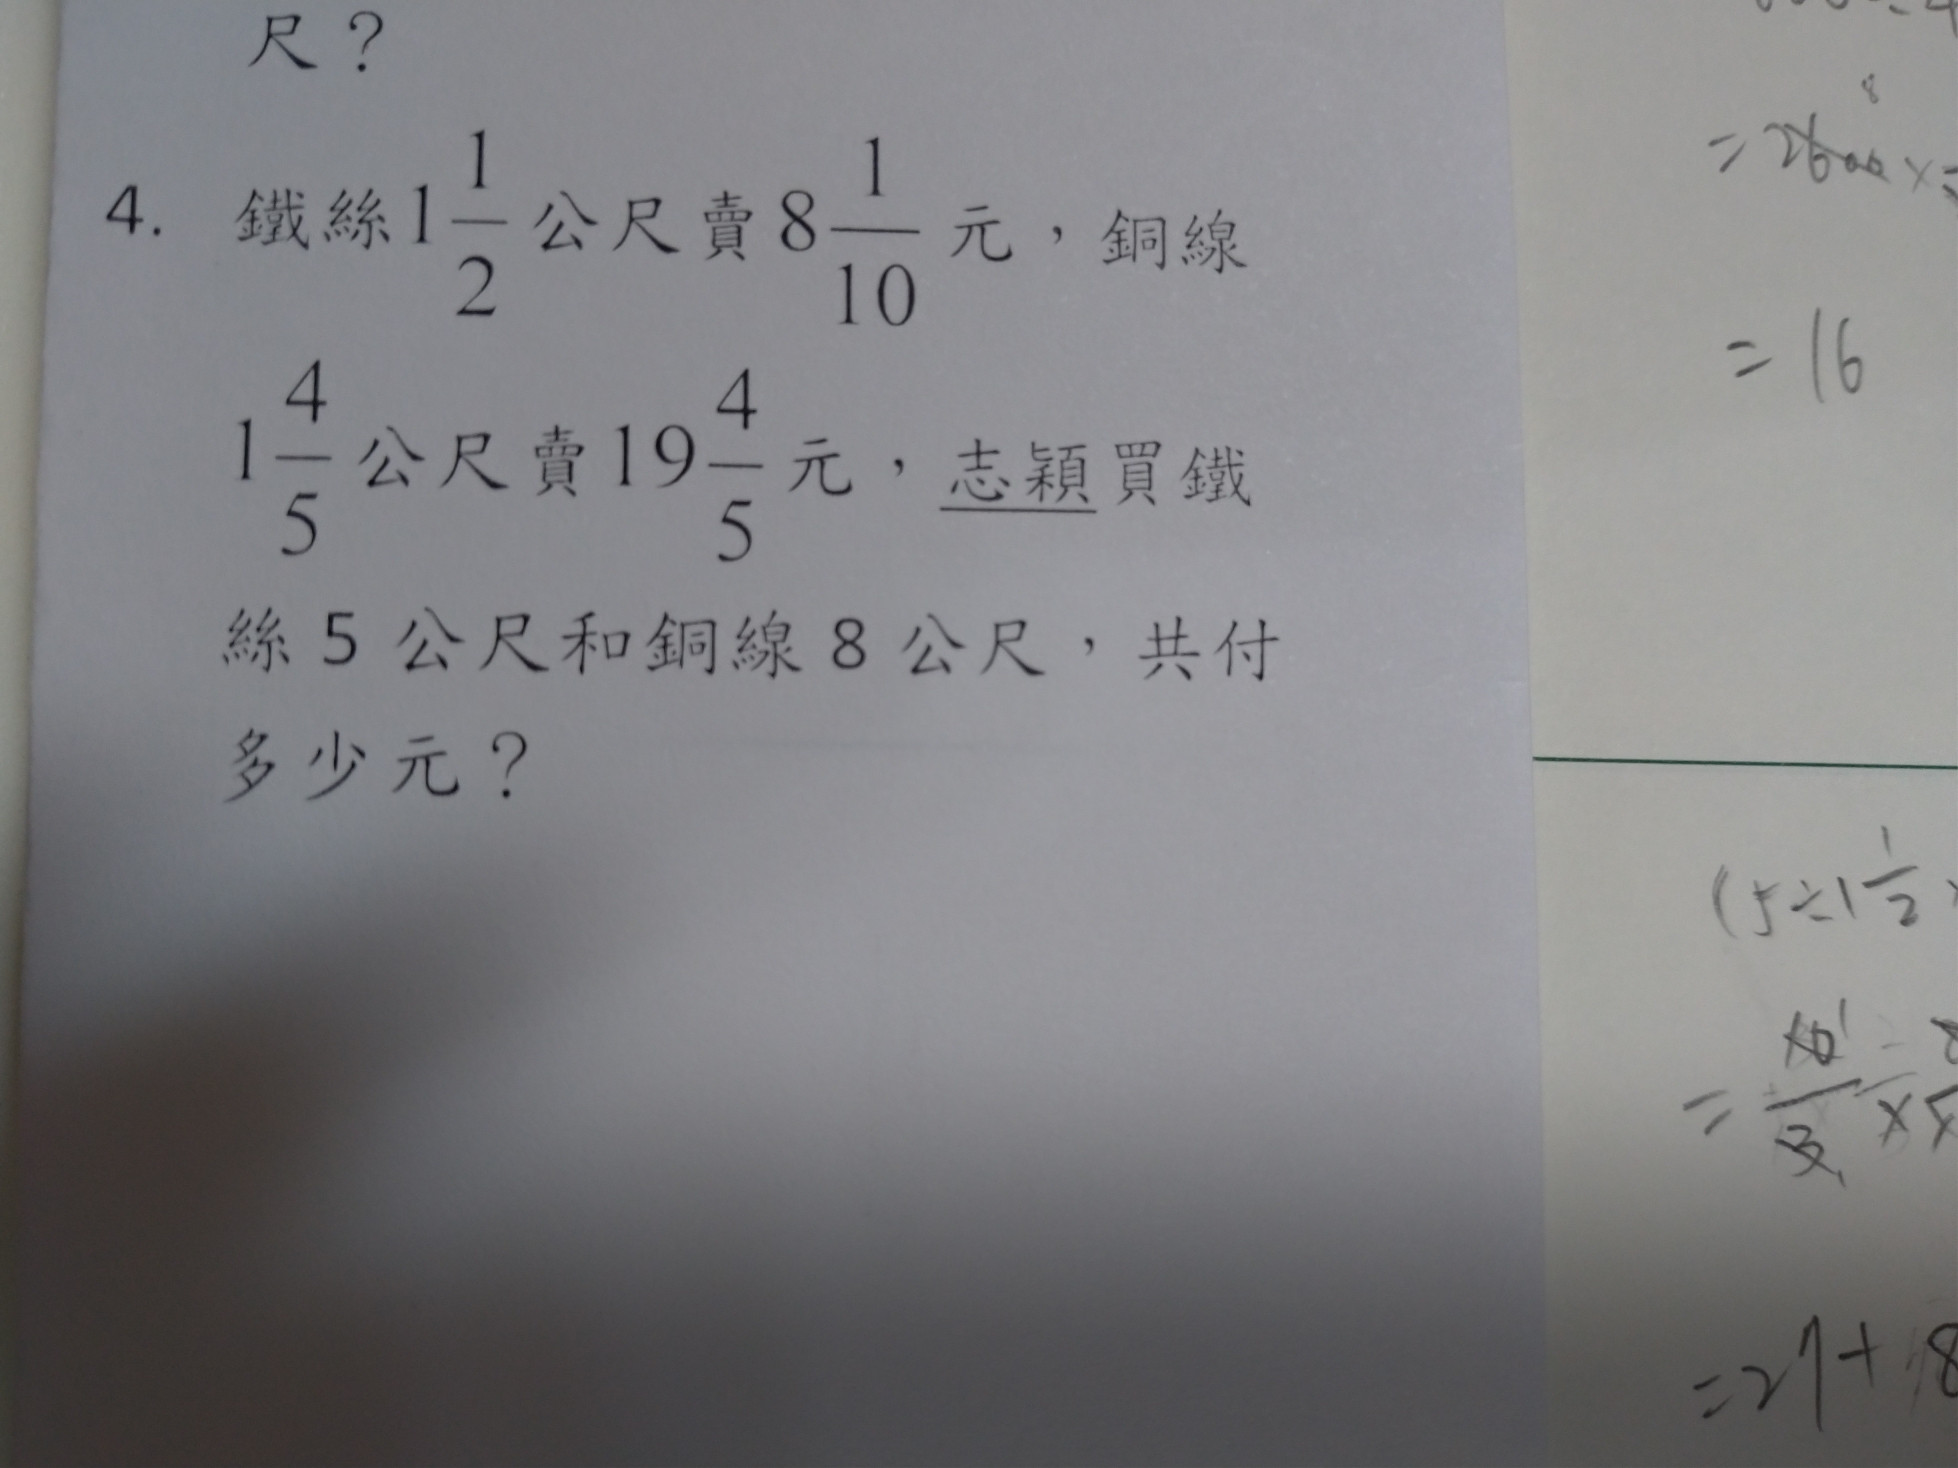 尺？
4. 鐵絲1 1/2 公尺賣8 1/10 元，銅線
1 4/5 公尺賣19 4/5 元，志穎買鐵
絲 5 公尺和銅線 8 公尺，共付
多少元？
= 16
(5÷1 1/2
=27+8